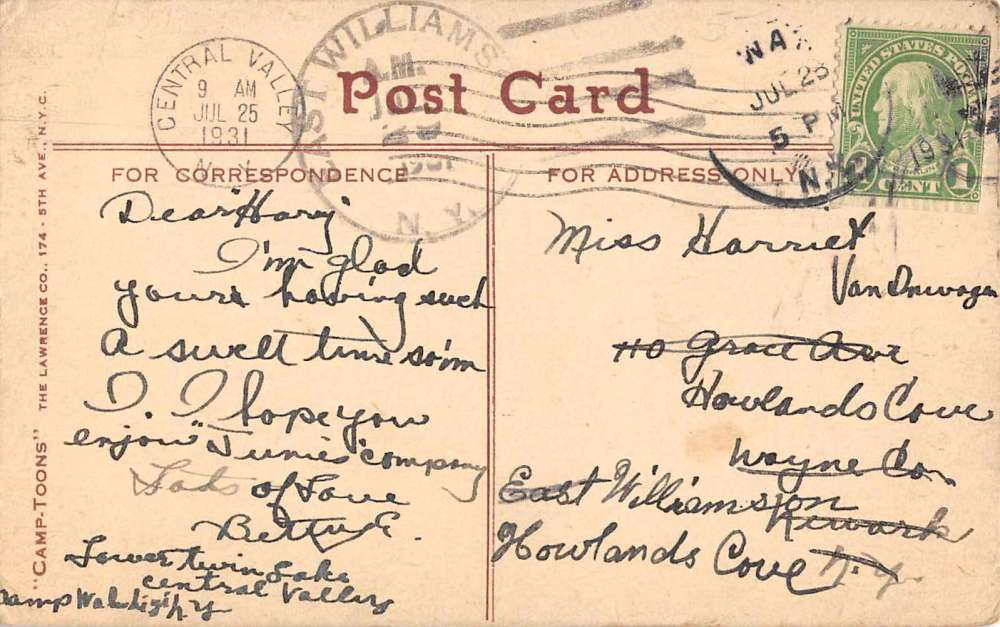 CENTRAL VALLEY
9 AM
JUL 25
1931
N.Y.
EAST WILLIAMS
A.M.
1931
N.Y.
WAY
JUL 25
5 PM
1931
N.Y.
UNITED STATES POSTAGE
1 CENT 1
Post Card
FOR CORRESPONDENCE
FOR ADDRESS ONLY
"CAMP-TOONS" THE LAWRENCE CO., 174 - 5TH AVE., N.Y.C.
Dear "Hary"
I'm glad
your's having such
a swell time so'm
I. I hope you
enjoy "Junies" company
Lots of Love
Betty E.
Lower twin Lake
Central Valley
Camp N.Y.
Miss Harriet
110 Grace Ave
Howlands Cove
Wayne Co.
East Williamson
Newark
Howlands Cove N.Y.